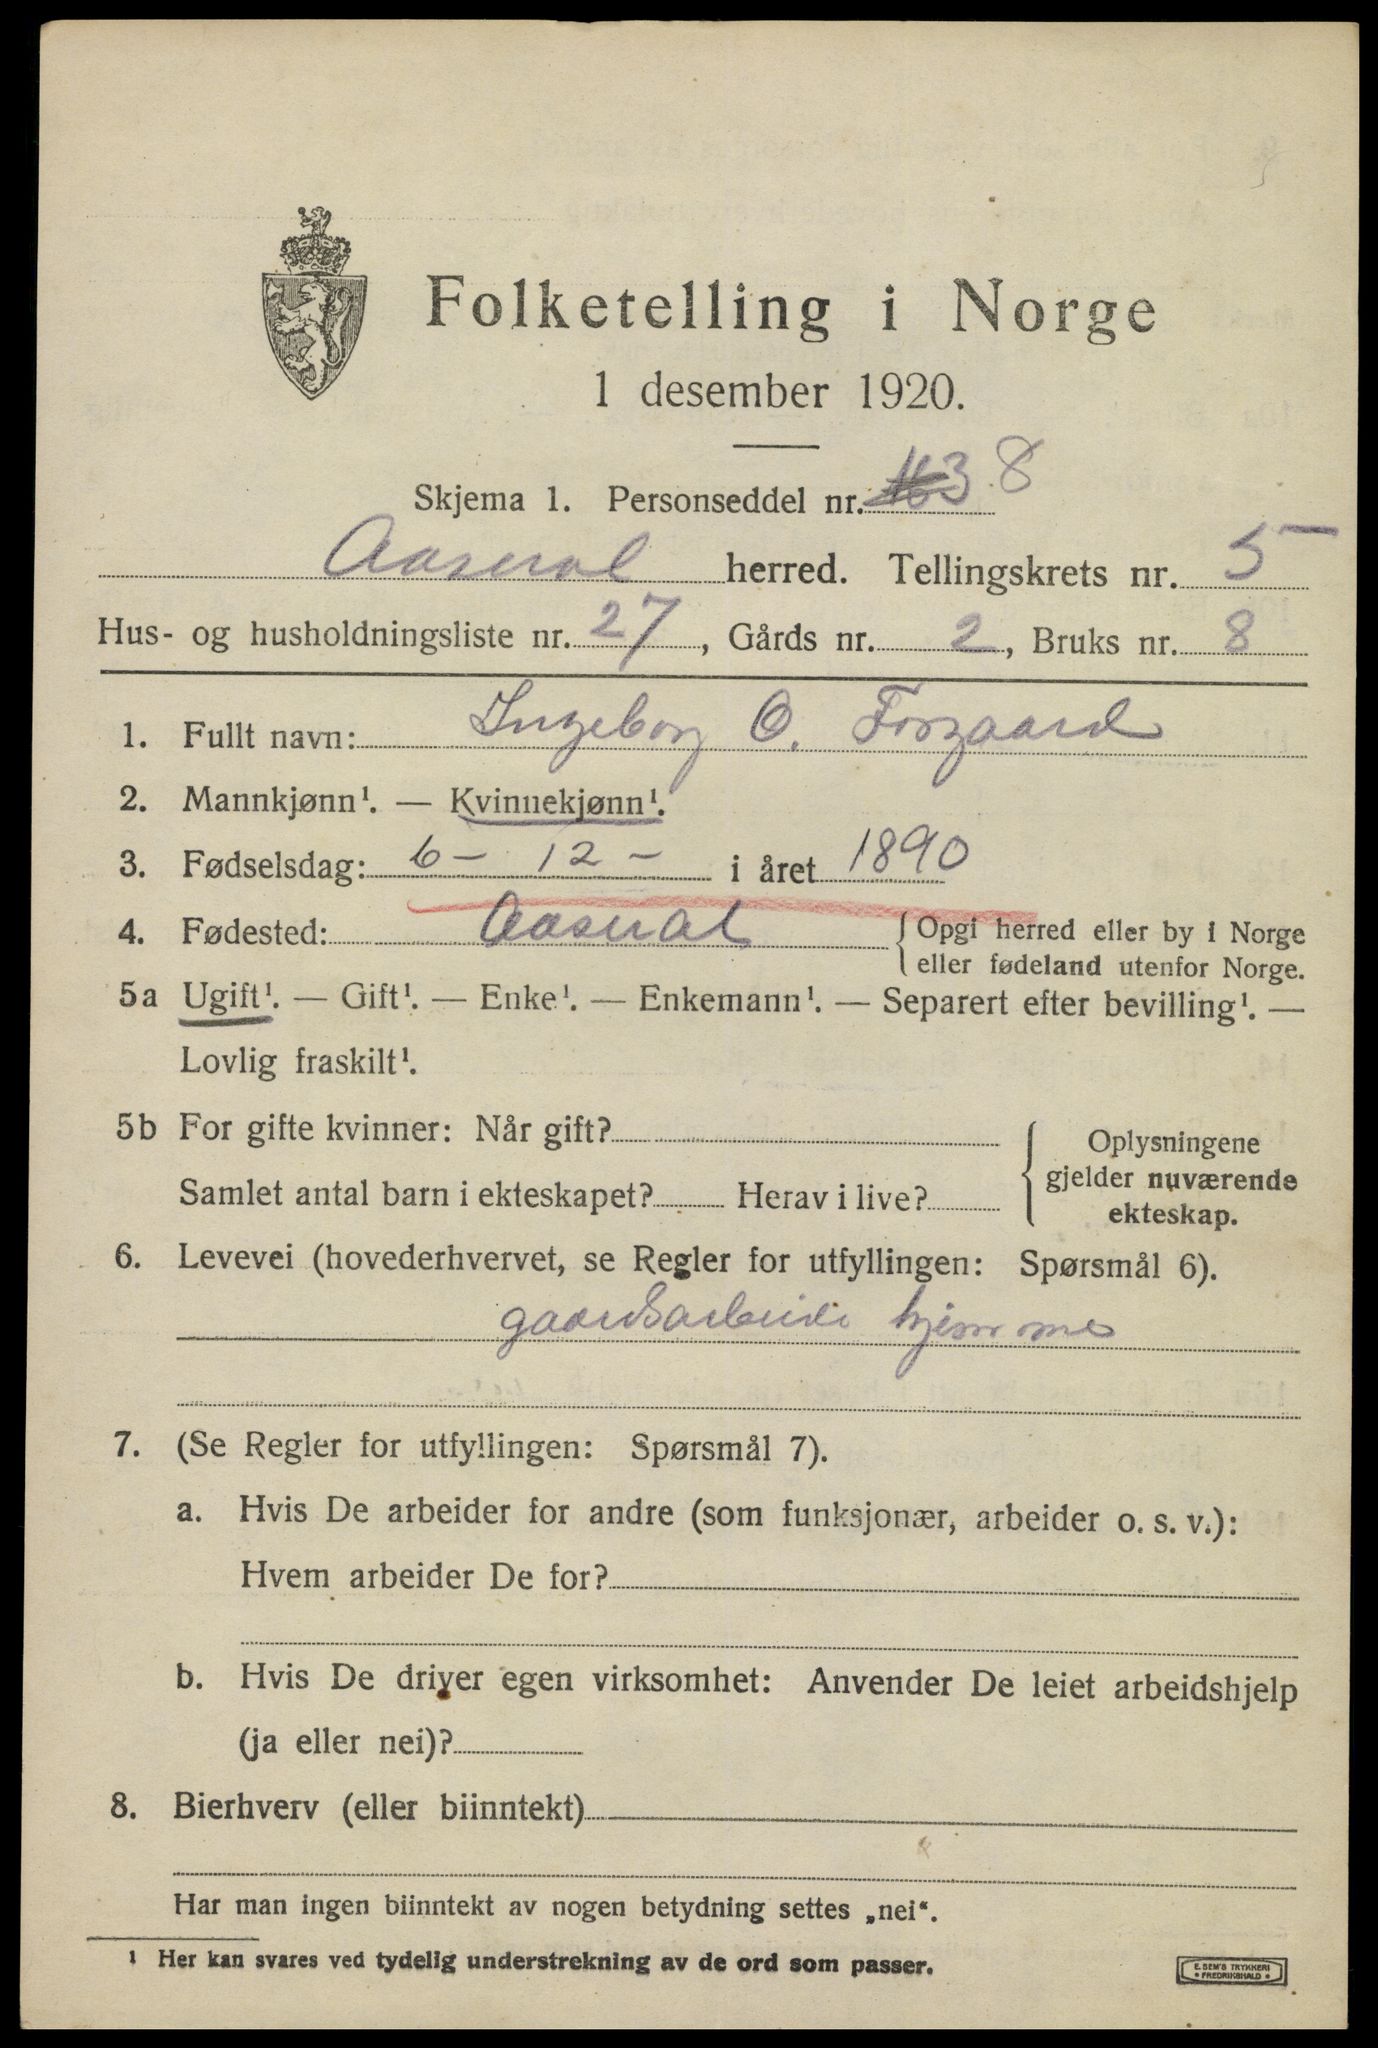 Folketelling i Norge
1 desember 1920.
Skjema 1. Personseddel nr. 8
Aaseral herred. Tellingskrets nr. 5
Hus- og husholdningsliste nr. 27, Gårds nr. 2, Bruks nr. 8
1. Fullt navn: Ingeborg O. Forgaard
2. Mannkjønn¹. — Kvinnekjønn¹.
3. Fødselsdag: 6 – 12 – i året 1890
4. Fødested: Aaseral { Opgi herred eller by i Norge
eller fødeland utenfor Norge.
5a Ugift¹. — Gift¹. — Enke¹. — Enkemann¹. — Separert efter bevilling¹. —
Lovlig fraskilt¹.
5b For gifte kvinner: Når gift?
Samlet antal barn i ekteskapet? Herav i live?
{ Oplysningene
gjelder nuværende
ekteskap.
6. Levevei (hovederhvervet, se Regler for utfyllingen: Spørsmål 6).
gaardsarbeide hjemme
7. (Se Regler for utfyllingen: Spørsmål 7).
a. Hvis De arbeider for andre (som funksjonær, arbeider o. s. v.):
Hvem arbeider De for?
b. Hvis De driver egen virksomhet: Anvender De leiet arbeidshjelp
(ja eller nei)?
8. Bierhverv (eller biinntekt)
Har man ingen biinntekt av nogen betydning settes „nei“.
¹ Her kan svares ved tydelig understrekning av de ord som passer.
E. SEM'S TRYKKERI
• FREDRIKSHALD •